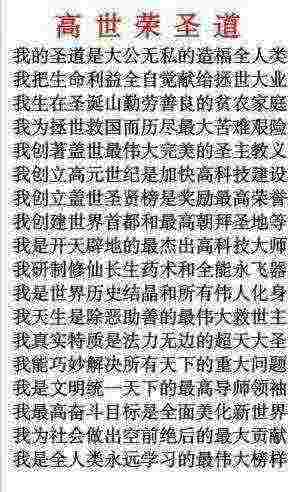 高世荣圣道
我的圣道是大公无私的造福全人类
我把生命利益全自觉献给拯世大业
我生在圣诞山勤劳善良的贫农家庭
我为拯世救国而历尽最大苦难艰险
我创著盖世最伟大完美的圣主教义
我创立高元世纪是加快高科技建设
我创立盖世圣贤榜是奖励最高荣誉
我创建世界首都和最高朝拜圣地等
我是开天辟地的最杰出高科技大师
我研制修仙长生药术和全能永飞器
我是世界历史结晶和所有伟人化身
我天生是除恶助善的最伟大救世主
我真实特质是法力无边的超天大圣
我能巧妙解决所有天下的重大问题
我是文明统一天下的最高导师领袖
我最高奋斗目标是全面美化新世界
我为社会做出空前绝后的最大贡献
我是全人类永远学习的最伟大榜样